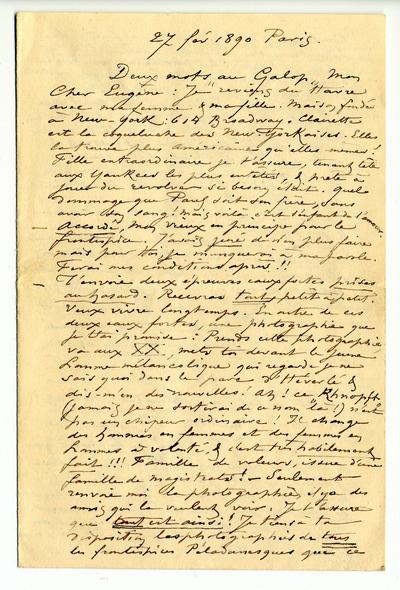 27 fév 1890 Paris.
Deux mots au Galop, Mon
Cher Eugène : Je reviens du Havre
avec ma femme & ma fille. Maison fondée
à New-York : 614 Broadway. Clairette
est la coqueluche des New Yorkaises. Elles
la trouve plus américaine qu'elles mêmes !
Fille extraordinaire je t'assure, tenant tête
aux Yankees les plus entêtés, & prête à
jouer du revolver si besoin était. Quel
dommage que Paul soit son frère, sans
avoir son sang ! mais voilà c'est l'enfant de l'amour.
— Accordé, mon vieux en principe pour le
frontispice. J'avais juré de n'en plus faire
mais pour toi je manquerai à ma parole.
Ferai mes conditions après !!!
— T'envoie deux épreuves eaux fortes prises
au hasard. Recevras tout, petit à petit.
Veux vivre longtemps. En outre de ces
deux eaux fortes, une photographie que
je t'ai promise : Prends cette photographie
va aux XX, mets toi devant le jeune
homme mélancolique qui regarde je ne
sais quoi dans le parc d'Héverlé &
dis-m'en des nouvelles ! Ah ! ce Khnopff
(jamais je ne sortirai de ce nom là !) n'est
pas un chipeur ordinaire ! Il change
des hommes en femmes et des femmes en
hommes à volonté, & c'est très habilement
fait !!! Famille de voleurs, issue d'une
famille de magistrats ! — Seulement
renvoie moi la photographie, il y a des
amis qui la veulent voir. Je t'assure
que tout est ainsi ! Je tiens à ta
disposition les photographies de tous
les frontispices Péladanesques que ce